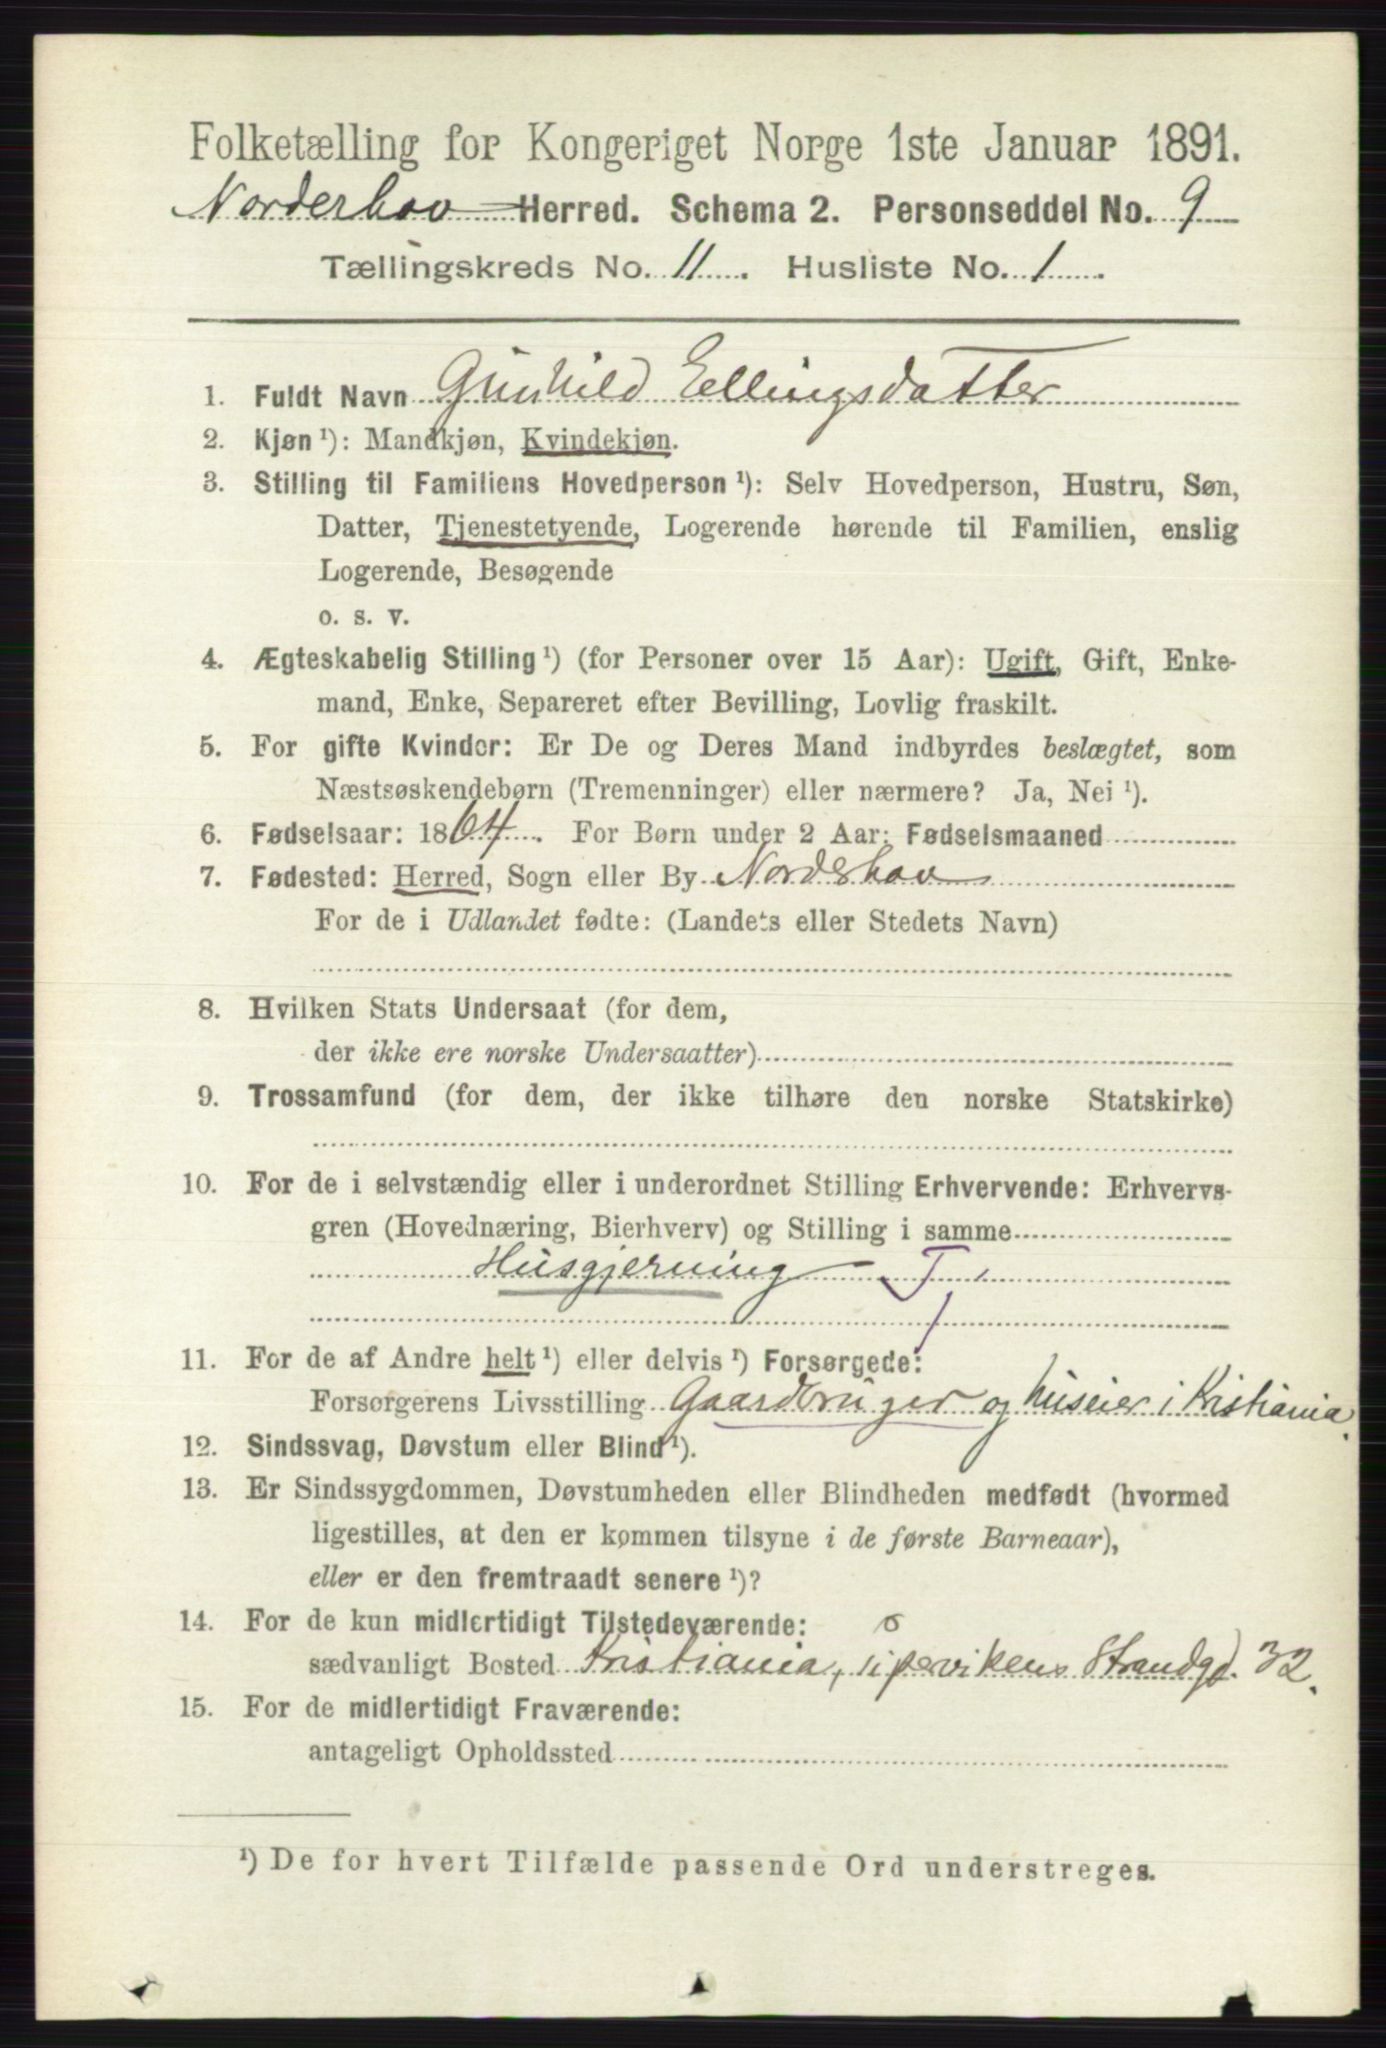 Folketælling for Kongeriget Norge 1ste Januar 1891.
Norderhov Herred. Schema 2. Personseddel No. 9
Tællingskreds No. 11. Husliste No. 1.
1. Fuldt Navn Gunhild Ellingsdatter
2. Kjøn ¹): Mandkjøn, Kvindekjøn.
3. Stilling til Familiens Hovedperson ¹): Selv Hovedperson, Hustru, Søn,
Datter, Tjenestetyende, Logerende hørende til Familien, enslig
Logerende, Besøgende
o. s. v.
4. Ægteskabelig Stilling ¹) (for Personer over 15 Aar): Ugift, Gift, Enke-
mand, Enke, Separeret efter Bevilling, Lovlig fraskilt.
5. For gifte Kvinder: Er De og Deres Mand indbyrdes beslægtet, som
Næstsøskendebørn (Tremenninger) eller nærmere? Ja, Nei ¹).
6. Fødselsaar: 1864. For Børn under 2 Aar: Fødselsmaaned
7. Fødested: Herred, Sogn eller By Norderhov
For de i Udlandet fødte: (Landets eller Stedets Navn)
8. Hvilken Stats Undersaat (for dem,
der ikke ere norske Undersaatter)
9. Trossamfund (for dem, der ikke tilhøre den norske Statskirke)
10. For de i selvstændig eller i underordnet Stilling Erhvervende: Erhvervs-
gren (Hovednæring, Bierhverv) og Stilling i samme
Husgjerning T
11. For de af Andre helt ¹) eller delvis ¹) Forsørgede:
Forsørgerens Livsstilling Gaardbruger og huseier i Kristiania.
12. Sindssvag, Døvstum eller Blind ¹).
13. Er Sindssygdommen, Døvstumheden eller Blindheden medfødt (hvormed
ligestilles, at den er kommen tilsyne i de første Barneaar),
eller er den fremtraadt senere ¹)?
14. For de kun midlertidigt Tilstedeværende: o
sædvanligt Bosted Kristiania, Pipervikens Strandgd. 32.
15. For de midlertidigt Fraværende:
antageligt Opholdssted
¹) De for hvert Tilfælde passende Ord understreges.